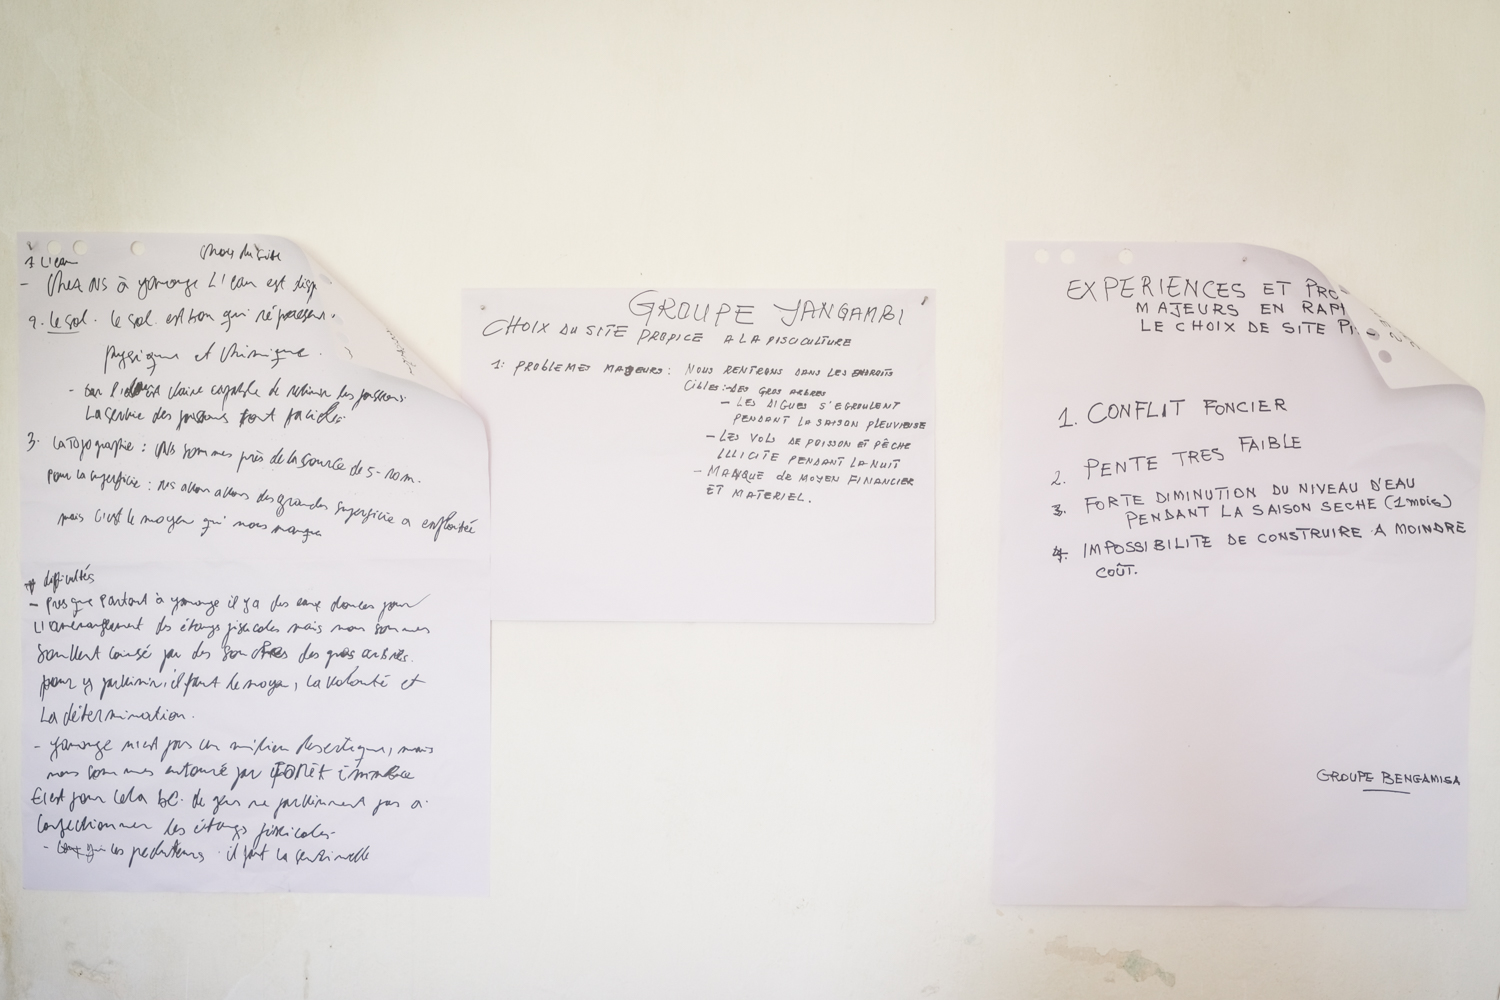 Choix du site
1 L'eau
- Chez NS à yamonge L'eau est disp
2. le sol. le sol est bon qui
physique et chimique.
capable de retenir les poissons
La servie des poissons sont faciles
3. La Topographie : NS sommes près de la source de 5-10m.
pour la superficie : ns allons des grandes superficie a exploitée
mais c'est le moyen qui nous manque
difficultés
- Presque Partout à yamonge il y a des eaux douces pour
L'aménagement des étangs piscicoles mais nous sommes
souvent causé par des des gros arbres.
pour y parvenir, il faut le moyen, la volonté et
La détermination.
- yamonge n'est pas un milieu desertique, mais
nous sommes entouré par FORÊT
C'est pour cela bc. de gens ne parviennent pas à
confectionner les étangs piscicoles.
- les predateurs. il faut la sentinelle
GROUPE YANGAMBI
CHOIX DU SITE PROPICE A LA PISCICULTURE
1: PROBLEMES MAJEURS : NOUS RENTRONS DANS LES ENDROITS
CIBLES : - DES GROS ARBRES
- LES DIGUES S'EGROULENT
PENDANT LA SAISON PLEUVIEUSE
- LES VOLS DE POISSON ET PÊCHE
ILLICITE PENDANT LA NUIT
- MANQUE DE MOYEN FINANCIER
ET MATERIEL.
EXPERIENCES ET PRO
MAJEURS EN RAP
LE CHOIX DE SITE PI
1. CONFLIT FONCIER
2. PENTE TRES FAIBLE
3. FORTE DIMINUTION DU NIVEAU D'EAU
PENDANT LA SAISON SECHE (1 mois)
4. IMPOSSIBILITE DE CONSTRUIRE A MOINDRE
COÛT.
GROUPE BENGAMISA